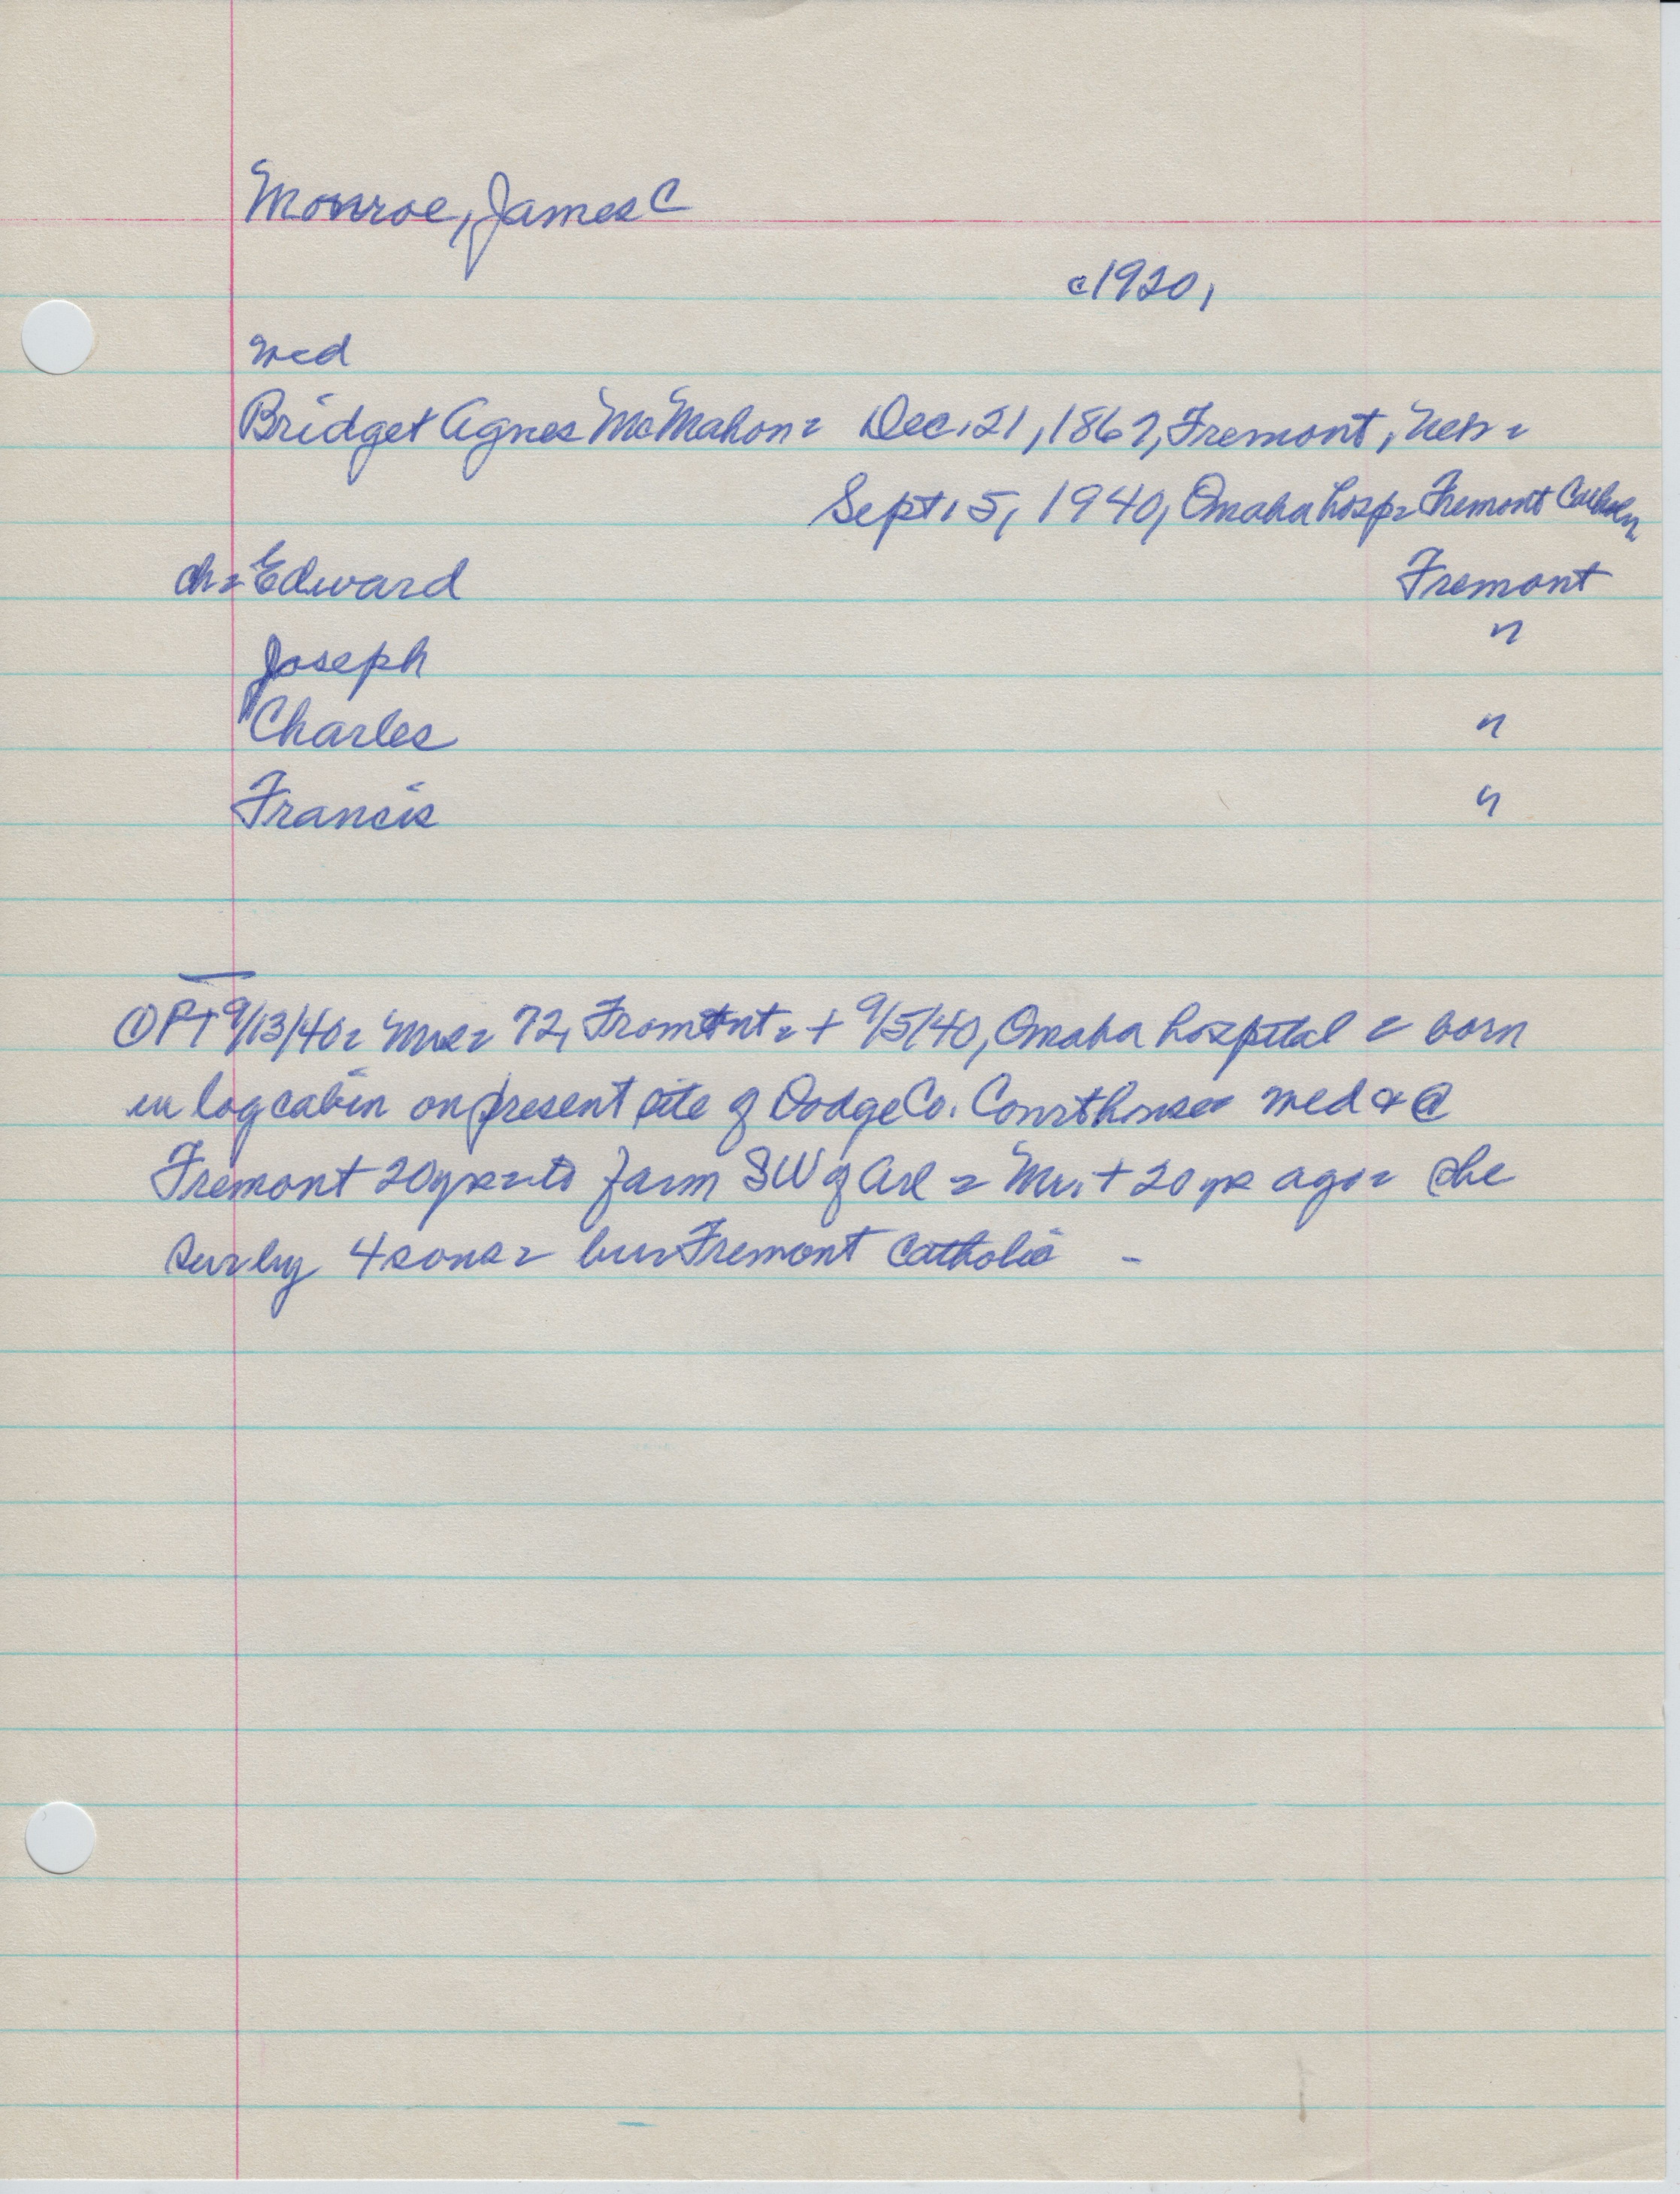 Monroe, James C
c1920,
med
Bridget Agnes McMahon = Dec. 21, 1867, Fremont, Neb =
Sept. 5, 1940, Omaha hosp = Fremont Cathol
ch = Edward Fremont
Joseph "
Charles "
Francis "
① PT 9/13/40 = Mrs = 72, Fremont = + 9/5/40, Omaha hospital = born
in log cabin on present site of Dodge Co. Courthouse = med & @
Fremont 20 yrs = to farm SW of Arl = Mr. + 20 yrs ago = she
sur by 4 sons = bur Fremont Catholic -